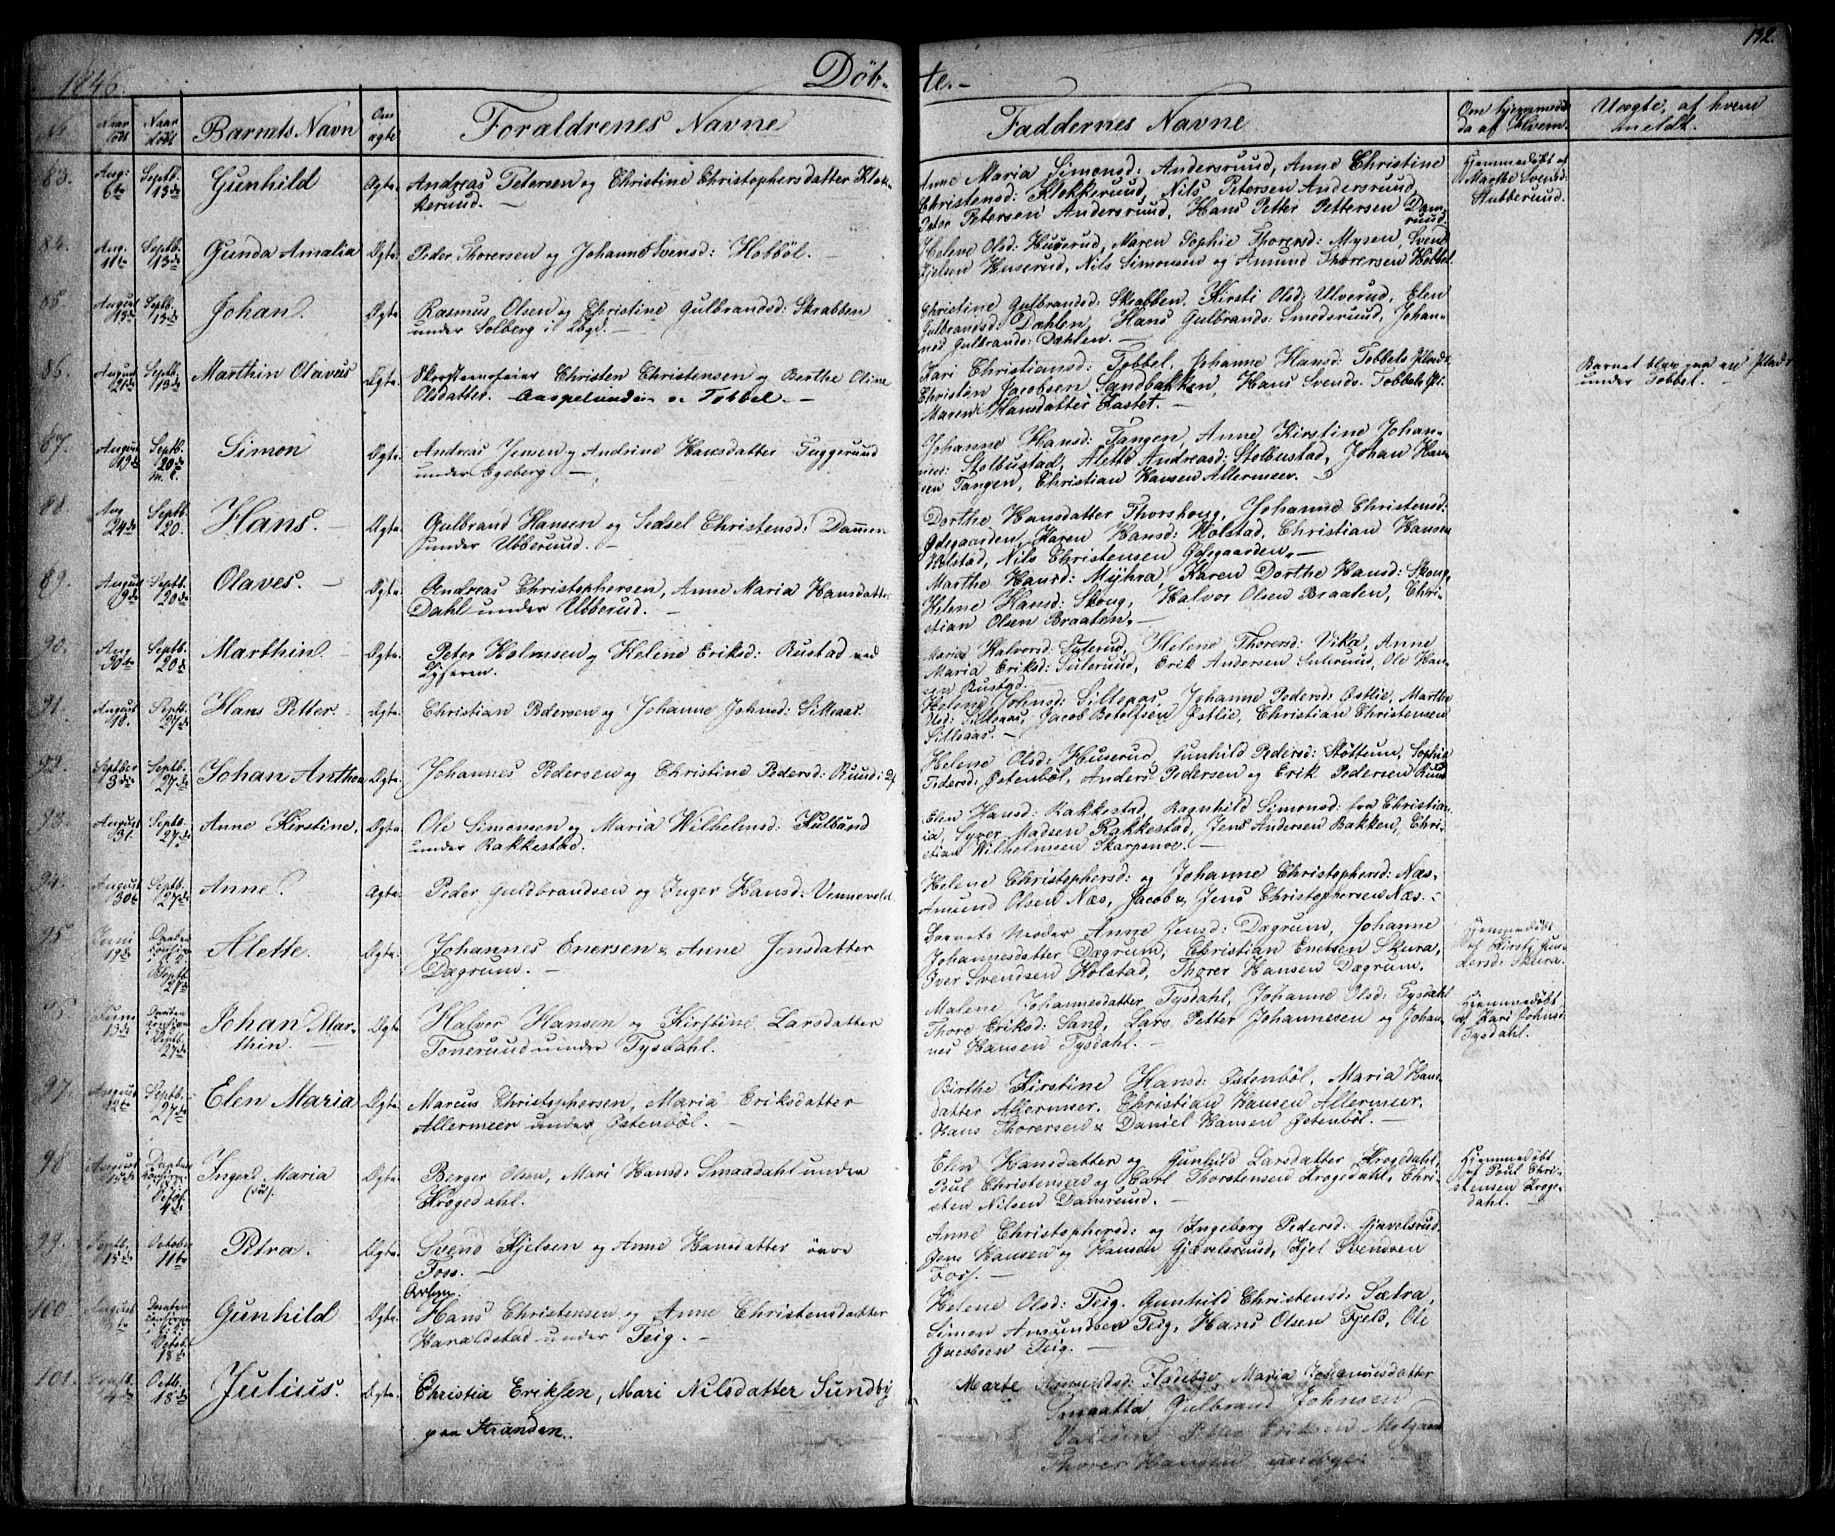 1846. Døb- te.- 192.
No Naar født Naar døbt Barnets Navn Om ægte Foraldrenes Navne Faddernes Navne Om hjemmedø- Uægte, af hvem
da af Hvem. meldt.
83. Aug: 6te Septb. 13de Gunhild Ægte Andreas Petersen og Christine Christophersdatter Klok-
kerund. -
Anne Maria Simonsd: Andersruud, Anne Christine
Christensd: Klokkeruud, Nils Petersen Andersruud,
Peter Petersen Andersruud, Hans Petter Pettersen Dam-
ruud.
Hjemmedøbt af
Marthe Svensd:
Stubberuud.
84. Aug. 11te Septb. 13de Gunda Amalia Ægte Peder Thorersen og Johanne Svensd: Hobbøl. -
Helene Olsd: Huserud, Maren Sophie Thorersd: Mysen, Svend
Kjelsen Huserud, Nils Simonsen og Amund Thorersen Hobbøl.
85. August 13de Septb. 13de Johan. Ægte Rasmus Olsen og Christine Gulbrandsd: Skrabben
under Solberg i Ebgd. -
Christine Gulbrandsd: Skrabben. Kirsti Olsd: Ulverud, Elen
Gulbrandsd: Dæhlen, Hans Gulbrands: Smedsruud, Johan-
nes Gulbrands: Dæhlen. -
86. August 21de Septb. 13de Marthin Olaves Ægte Skorstensfeier Christen Christensen og Berthe Oline
Olsdatter. Aaspelunden Tobbel. -
Kari Christiansd: Tobbel, Johanne Hansd: Tobbels
Christen Jacobsen Sandbakken, Hans Svends. Tobbels
Maren Hansdatter Kastet. -
Barnet blev paa en
under Tobbel. -
87. August 19de Septb. 20de Simon Ægte Andreas Jensen og Andrine Hansdatter Tuggerund
under Egeberg -
Johanne Hansd: Tangen, Anne Kirstine Johan-
nesd: Stolbustad, Alette Andreasd: Stolbustad, Johan Han-
sen Tangen, Christian Hansen Allermeer. -
88. Aug 24de Septb. 20. Hans. - Ægte Gulbrand Hansen og Sidsel Christensd: Dammen
under Ubberuud. -
Dorthe Hansdatter Thorskoug, Johanne Christensd:
Ødegaarden, Karen Hansd: Holstad, Christian Hansen
Holstad, Nils Christensen Ødegaarden. -
89. August 9de Septb. 20de Olaves. - Ægte Andreas Christophersen, Anne Maria Hansdatter
Dahl under Ubberud. -
Marthe Hansd: Myhra, Karen Dorthe Hansd: Skoug,
Helene Hansd: Skoug, Halvor Olsen Braaten, Chri-
stian Olsen Braaten. -
90. Aug 30te Septb. 20de Marthin. - Ægte Peter Holmsen og Helene Eriksd: Rustad ved
Lyseren.
Maria Halvorsd: Sulerud, Helene Thorersd: Vika, Anne
Maria Eriksd: Suleruud, Erik Andersen Suleruud, Ole Han-
sen Rustad. -
91. August 10. Septb. 27de Hans Petter - Ægte Christian Pedersen og Johanne Johnsd: Sitteaas.
Helene Johnsd: Sitteaas, Johanne Pedersd: Østlie, Marthe
Olsd: Sitteaas, Jacob Botolfsen Østlie, Christian Christensen
Sitteaas. -
92. Septber 3die Septb. 27de Johan Anthon Ægte Johannes Pedersen og Christine Pedersd: Ruud:
Helene Olsd: Huserud, Gunhild Pedersd: Støttum, Sophie
Pedersd: Østenbøl, Anders Pedersen og Erik Pedersen Ruud
93. August 31. Septb. 27de Anne Kirstine. Ægte Ole Simonsen og Maria Wilhelmsd: Kulbund
under Rakkestad.
Elen Hansd: Rakkestad, Ragnhild Simonsd: fra Christia-
nia, Syver Madsen Rakkestad, Jens Andersen Bakken, Chri-
stian Wilhelmsen Skarpsnoe. -
94. August 30te Septb. 27de Anne. Ægte Peder Guldbrandsen og Inger Hansd: Vennevold
Helene Christophersd: og Johanne Christophersd: Næs.
Amund Olsen Næs, Jacob & Jens Christophersen Næs. -
95. Juni 17de Septb. 27de Alette. Ægte Johannes Enersen & Anne Jensdatter
Dægrum. -
Barnets Moder Anne Jensd: Dægrum, Johanne
Johannesdatter Dægrum, Christian Enersen Skura,
Iver Svendsen Holstad, Thorer Hansen Dægrum.
Hjemmedøbt
af Kirsti Gun-
dersd: Skura.
Juni 13de Septb. 27de Johan Mar-
thin. - Ægte Halvor Hansen og Kirstine Larsdatter
Toneruud under Tysdahl.
Malene Johannesdatter Tysdahl, Johanne Olsd: Tysdahl
Thore Eriksd: Sand, Lars Petter Johannesen og Johan-
nes Hansen Tysdahl. -
Hjemmedøbt
af Kari Johnsd:
Tysdahl.
97. August 12te Septb. 27de Elen Maria Ægte Marcus Christophersen, Maria Eriksdatter
Allermeer under Østenbøl. -
Birthe Kirstine Hansd: Østenbøl, Maria Hans-
datter Allermeer. Christian Hansen Allermeer.
Hans Thorersen & Daniel Hansen Østenbøl. -
98 August 15de Octob. 4de Ingerd Maria
Ægte Berger Olsen, Mari Hansd: Smaadahl under
Krogedahl.
Elen Hansdatter og Gunhild Larsdatter Krogedahl,
Poul Christensen og Carl Thorstensen Krogedahl, Chri-
sten Nilsen Damruud. -
Hjemmedøbt
af Poul Chri-
stensen Kroge-
dahl. -
99. Septb. 15de October 11te Petra. Ægte Svend Kjelsen og Anne Hansdatter övre
Foss. -
Anne Christophersd: og Ingeborg Pedersd. Gjævelsrud.
Jens Hansen og Hansen Gjævelsruud, Kjel Svendsen
Foss. -
100 August October 18de Gunhild Ægte Hans Christensen og Anne Christensdatter
Haraldstad under Teig. -
Helene Olsd: Teig. Gunhild Christensd: Sætra,
Simon Amundsen Teig, Hans Olsen Fjeld, Ole
Jacobsen Teig. -
101. Septb. 4de Octb. 18de Julius. Ægte Christia Eriksen, Mari Nilsdatter Sundby
paa Stranden.
Marte Amundsd: Fladebye, Maria Johannesdatter
Smaatta, Gulbrand Johnsen
Petter Eriksen
Thorer Hansen